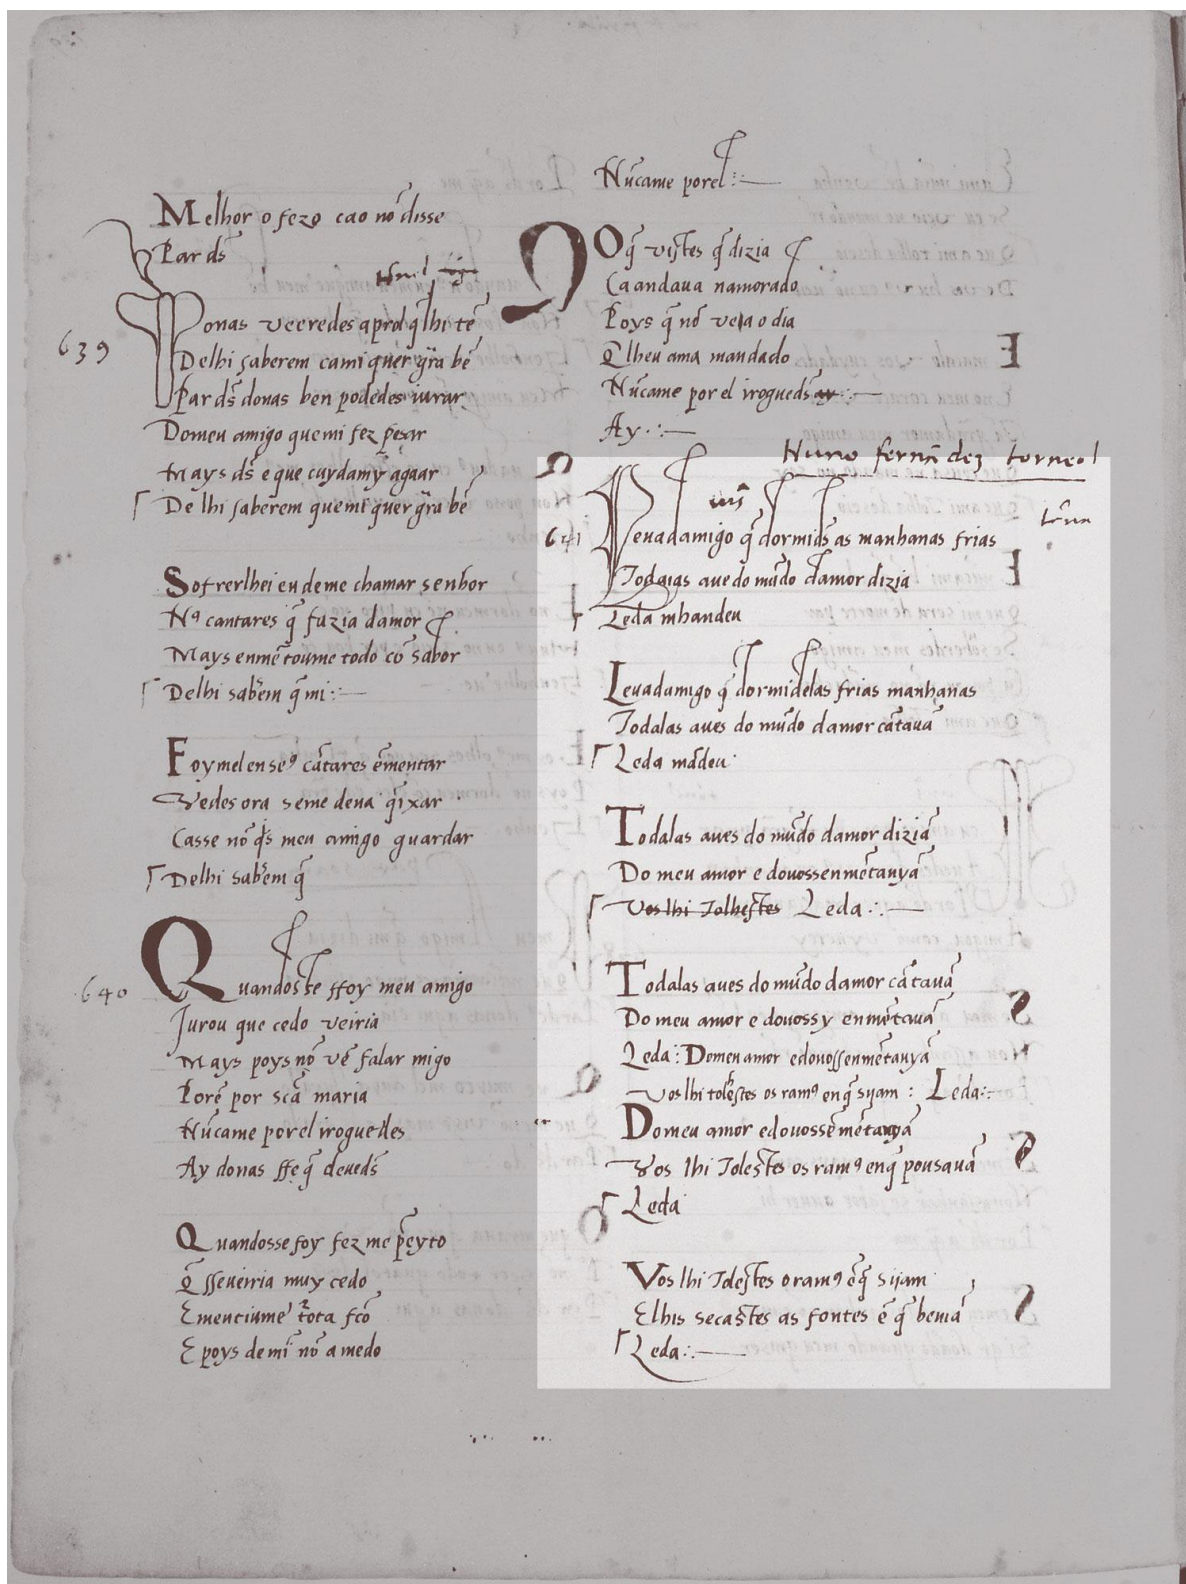 Melhor o fezo cao nō disse
Par ds̄
639
Donas veeredes a prol q̄ lhi tē
Delhi saberem cami quer gr̃a bē
Par ds̄ donas ben podedes iurar
Domeu amigo quemi fez pesar
Mays ds̄ e que cuydamy agaar
De lhi saberem quemi quer gr̃a bē
Sofrerlhei eu deme chamar senhor
Nꝯ cantares q̄ fazia damor
Mays enmētoume todo cō sabor
Delhi sab̃em q̄ mi:—
Foymelensꝯ cātares ēmentar
Vedes ora seme deva q̄ixar
Casse nō q̄s meu amigo guardar
Delhi sab̃em q̄
640
Quandoste ffoy meu amigo
Jurou que cedo veiria
Mays poys nō vē falar migo
Porē por scā maria
Nūcame porel irogue des
Ay donas ffe q̄ deveds̄
Quandosse foy fez me p̃eyto
Q̄ sseveiria muy cedo
Ementiume tota fcō
E poys demi nō a medo
Nūcame porel:—
O q̄ vistes q̄ dizia
Ca andava namorado
Poys q̄ nō veia o dia
Q̄lheu ama mandado
Nūcame por el irogueds̄
Ay.:—
Nuno fernādez torneol
641
Levadamigo q̄ dormids̄ as manhanas frias
Todaias ave do mūdo damor dizia
Leda mhandeu
Levadamigo q̄ dormidelas frias manhanas
Todalas aves do mūdo damor cātavā
Leda mādeu
Todalas aves do mūdo damor diziā
Do meu amor e dovossenmētavyā
Vos lhi Tolhestes Leda.:—
Todalas aves do mūdo damor cātavā
Do meu amor e dovossy enmētavā
Leda: Domeu amor edovossenmētavyā
Vos lhi tolestes os ramꝯ enq̄ siiam : Leda:—
Domeu amor edovossēmētavyā
Vos lhi Tolestes os ramꝯ enq̄ pousavā
Leda
Vos lhi Tolestes o ramꝯ ēq̄ siiam
Elhis secastes as fontes ē q̄ beviā
Leda.:—